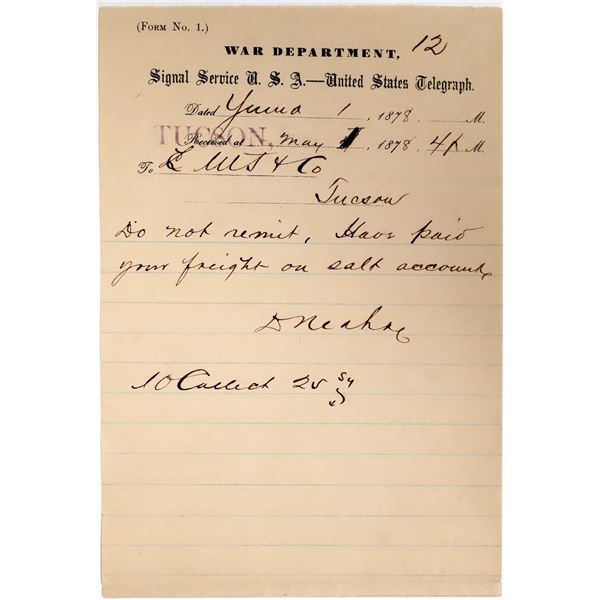 (Form No. 1.)
12
WAR DEPARTMENT,
Signal Service U. S. A.—United States Telegraph.
Dated Yuma 1, 1878, M.
TUCSON, Received at May 1, 1878, 41 M.
To & Co
Tucson
Do not remit, Have paid
your freight on salt account,
10 Collect 25